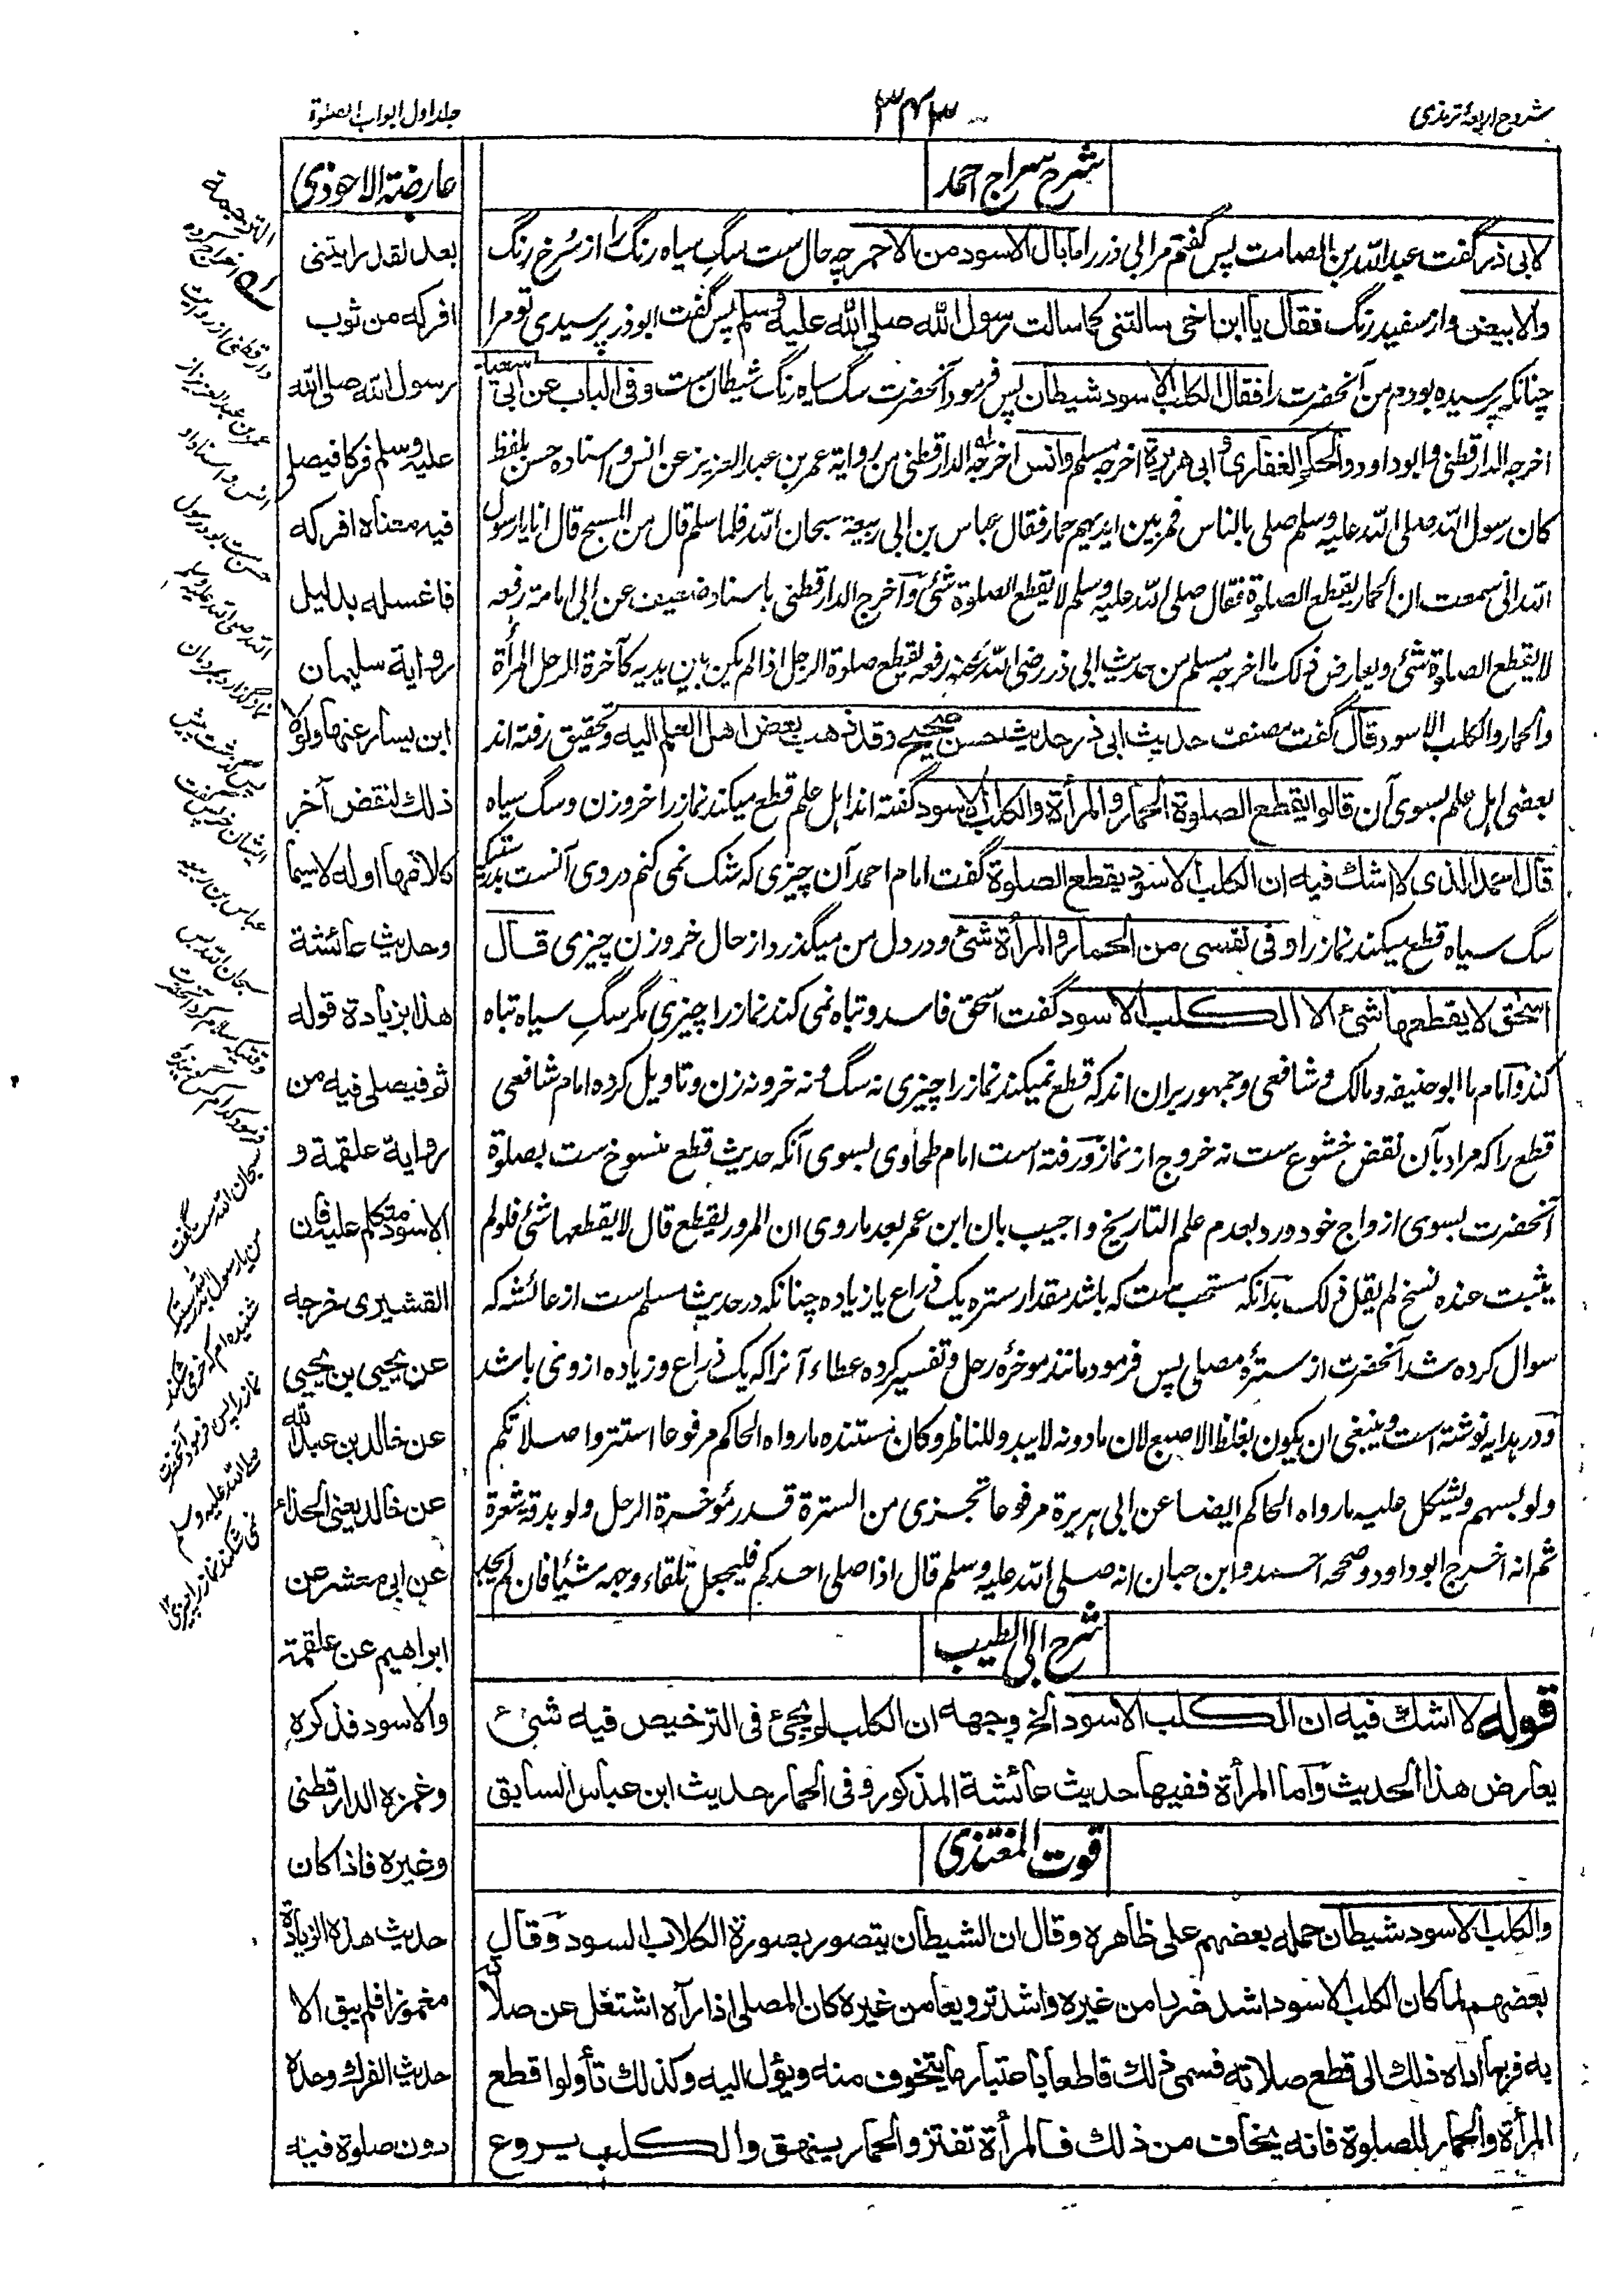 شروح اربعهٔ ترمذی
۳۴۳
جلد اول ابواب الصلوٰة
شرح سراج احمد
لابی ذر گفت عبد الله بن الصامت پس گفتم مر ابی ذر را ما بال الاسود من الاحمر چه حال ست سگ سیاه رنگ را از سُرخ رنگ
والابیض و از سفید رنگ فقال یا ابن اخی سالتنی کما سالت رسول الله صلی الله علیه وسلم پس گفت ابوذر پرسیدی تو مرا
چنانکه پرسیده بودم من آنحضرت را فقال الکلب الاسود شیطان پس فرمود آنحضرت سگ سیاه رنگ شیطان ست وفی الباب عن ابی سعید
اخرجه الدارقطنی وابوداود والحکم الغفاری وابی هریرة اخرجه مسلم وانس اخرجه الدارقطنی من روایة عمر بن عبد العزیز عن انس واسناده حسن بلفظ
کان رسول الله صلی الله علیه وسلم صلی بالناس فمر بین ایدیهم حمار فقال عباس بن ابی ربیعة سبحان الله فلما سلم قال من المسبح قال انا یا رسول
الله انی سمعت ان الحمار یقطع الصلوة فقال صلی الله علیه وسلم لا یقطع الصلوة شئ وآخرج الدارقطنی باسناد ضعیف عن ابی امامة رفعه
لا یقطع الصلوة شئ ویعارض ذلک ما اخرجه مسلم من حدیث ابی ذر رضی الله عنه رفعه یقطع صلوة الرجل اذا لم یکن بین یدیه کآخرة الرحل المرأة
والحمار والکلب الاسود قال گفت مصنف حدیث ابی ذر حدیث حسن صحیح وقد ذهب بعض اهل العلم الیه وتحقیق رفته اند
بعضی اهل علم بسوی آن قالوا یقطع الصلوة الحمار والمرأة والکلب الاسود گفته اند اهل علم قطع میکند نماز را خر و زن و سگ سیاه
قال احمد الذی لا اشک فیه ان الکلب الاسود یقطع الصلوة گفت امام احمد آن چیزی که شک نمی کنم در وی آنست بدرستیکه
سگ سیاه قطع میکند نماز را وفی نفسی من الحمار والمرأة شئ و در دل من میگذرد از حال خر و زن چیزی قال
اسحٰق لا یقطعها شئ الا الکلب الاسود گفت اسحٰق فاسد و تباه نمی کند نماز را چیزی مگر سگ سیاه تباه
کند وآمام ما ابو حنیفه و مالک و شافعی و جمهور بران اند که قطع نمیکند نماز را چیزی نه سگ و نه خر و نه زن و تاویل کرده امام شافعی
قطع را که مراد بآن نقض خشوع ست نه خروج از نماز و رفته است امام طحاوی بسوی آنکه حدیث قطع منسوخ ست بصلوة
آنحضرت بسوی ازواج خود ورد بعدم علم التاریخ واجیب بان ابن عمر بعد ما روی ان المرور یقطع قال لا یقطعها شئ فلو لم
یثبت عنده نسخ لم یقل ذلک بدانکه مستحب ست که باشد مقدار ستره یک ذراع یا زیاده چنانکه در حدیث مسلم ست از عائشه که
سوال کرده شد آنحضرت از سترهٔ مصلی پس فرمود مانند موخرهٔ رحل وتفسیر کرده عطاء آنرا که یک ذراع و زیاده ازو نمی باشد
ودر هدایه نوشته است وینبغی ان یکون بغلظ الاصبع لان ما دونه لا یبدو للناظر وکان مستنده ما رواه الحاکم مرفوعا استتروا صلاتکم
ولو بسهم ویشکل علیه ما رواه الحاکم ایضا عن ابی هریرة مرفوعا تجزی من السترة قدر مؤخرة الرحل ولو بدقة شعرة
ثم انه اخرج ابوداود وصححه احمد وابن حبان انه صلی الله علیه وسلم قال اذا صلی احدکم فلیجعل تلقاء وجهه شیئا فان لم یجد
شرح ابی الطیب
قوله لا اشک فیه ان الکلب الاسود الخ وجهه ان الکلب لم یجئ فی الترخیص فیه شئ
یعارض هذا الحدیث وآما المرأة ففیها حدیث عائشة المذکور وفی الحمار حدیث ابن عباس السابق
قوت المغتذی
والکلب الاسود شیطان حمله بعضهم علی ظاهره وقال ان الشیطان یتصور بصورة الکلاب السود وقال
بعضهم لما کان الکلب الاسود اشد ضررا من غیره واشد ترویعا من غیره کان المصلی اذا رآه اشتغل عن صلاته
به فربما اداه ذلک الی قطع صلاته فسمی ذلک قاطعا باعتبار ما یتخوف منه ویؤل الیه وکذلک تأولوا قطع
المرأة والحمار للصلوة فانه یخاف من ذلک فالمرأة تفتن والحمار ینهق والکلب یروع
عارضة الاحوذی
بعد لقد رایتنی
افرکه من ثوب
رسول الله صلی الله
علیه وسلم فرکا فیصلی
فیه معناه افرکه
فاغسله بدلیل
روایة سلیمان
ابن یسار عنها ولولا
ذلک لنقض آخر
کلامها اوله لا سیما
وحدیث عائشة
هذا بزیادة قوله
ثم فیصلی فیه من
روایة علقمة و
الاسود متکلم علیه فان
القشیری خرجه
عن یحیی بن یحیی
عن خالد بن عبد الله
عن خالد یعنی الحذاء
عن ابی معشر عن
ابراهیم عن علقمة
والاسود فذکره
وغمزه الدارقطنی
وغیره فاذا کان
حدیث هذه الزیادة
مغموزا فلم یبق الا
حدیث الفرک وحده
دون صلوة فیه
الترجمة
له اخراج کرده
دارقطنی از روایت
عمر بن عبد العزیز از
انس و اسناد او
حسن ست بود رسول
الله صلی الله علیه وسلم
نماز گزارد بمردمان
پس گذشت پیش
ایشان خر پس گفت
عباس بن ربیعه
سبحان الله پس
وقتیکه سلام کرد آنحضرت
سبحان الله ست گفت
من یا رسول الله بدرستیکه
شنیده ام که خر می شکند
نماز را پس فرمود آنحضرت
صلی الله علیه وسلم
نمی شکند نماز را چیزی ۱۲